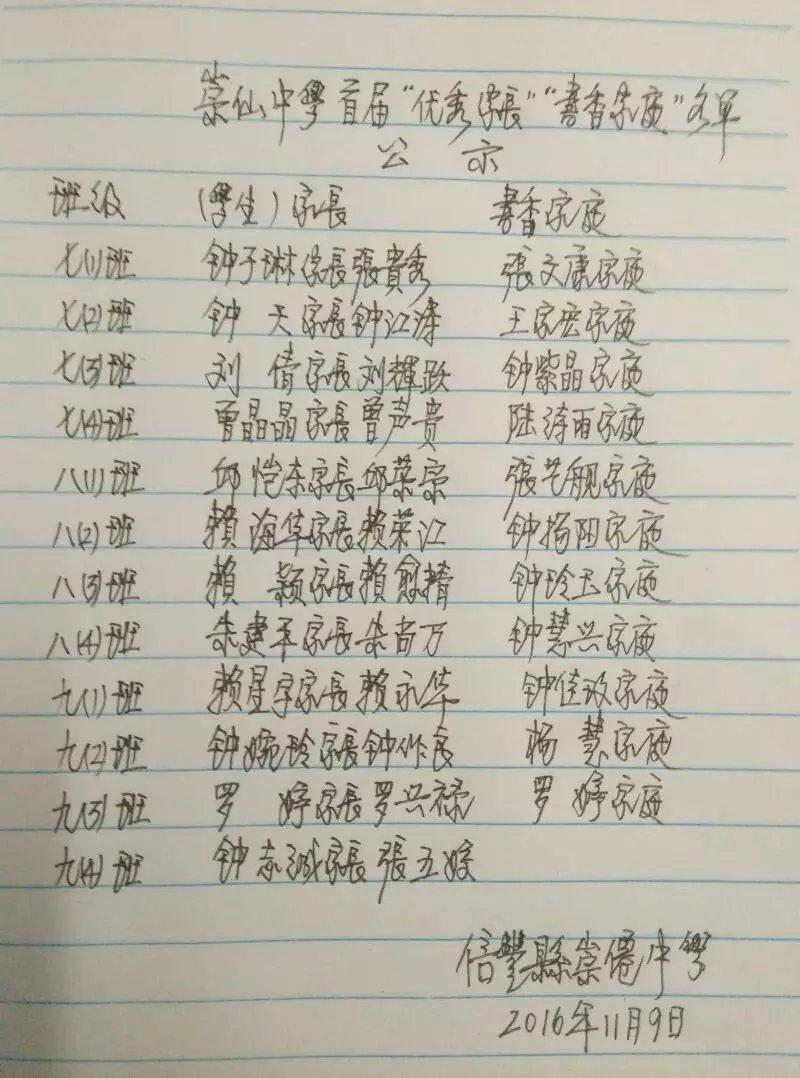 崇仙中學首届“优秀家長”“書香家庭”名单
公示
班级 (學生)家長 書香家庭
七(1)班 钟子琳家長張貴秀 張文康家庭
七(2)班 钟天家長钟江涛 王家宏家庭
七(3)班 刘倩家長刘輝跃 钟紫晶家庭
七(4)班 曾晶晶家長曾声贵 陆涛雨家庭
八(1)班 邱恺东家長邱荣宗 張艺舰家庭
八(2)班 赖海华家長赖荣江 钟扬阳家庭
八(3)班 賴颖家長賴 钟玲玉家庭
八(4)班 朱建平家長朱苟万 钟慧兴家庭
九(1)班 赖星宇家長赖永华 钟佳政家庭
九(2)班 钟婉玲家長钟作良 杨慧家庭
九(3)班 罗婷家長罗兴禄 罗婷家庭
九(4)班 钟志诚家長張五姣
信豐縣崇僊中學
2016年11月9日